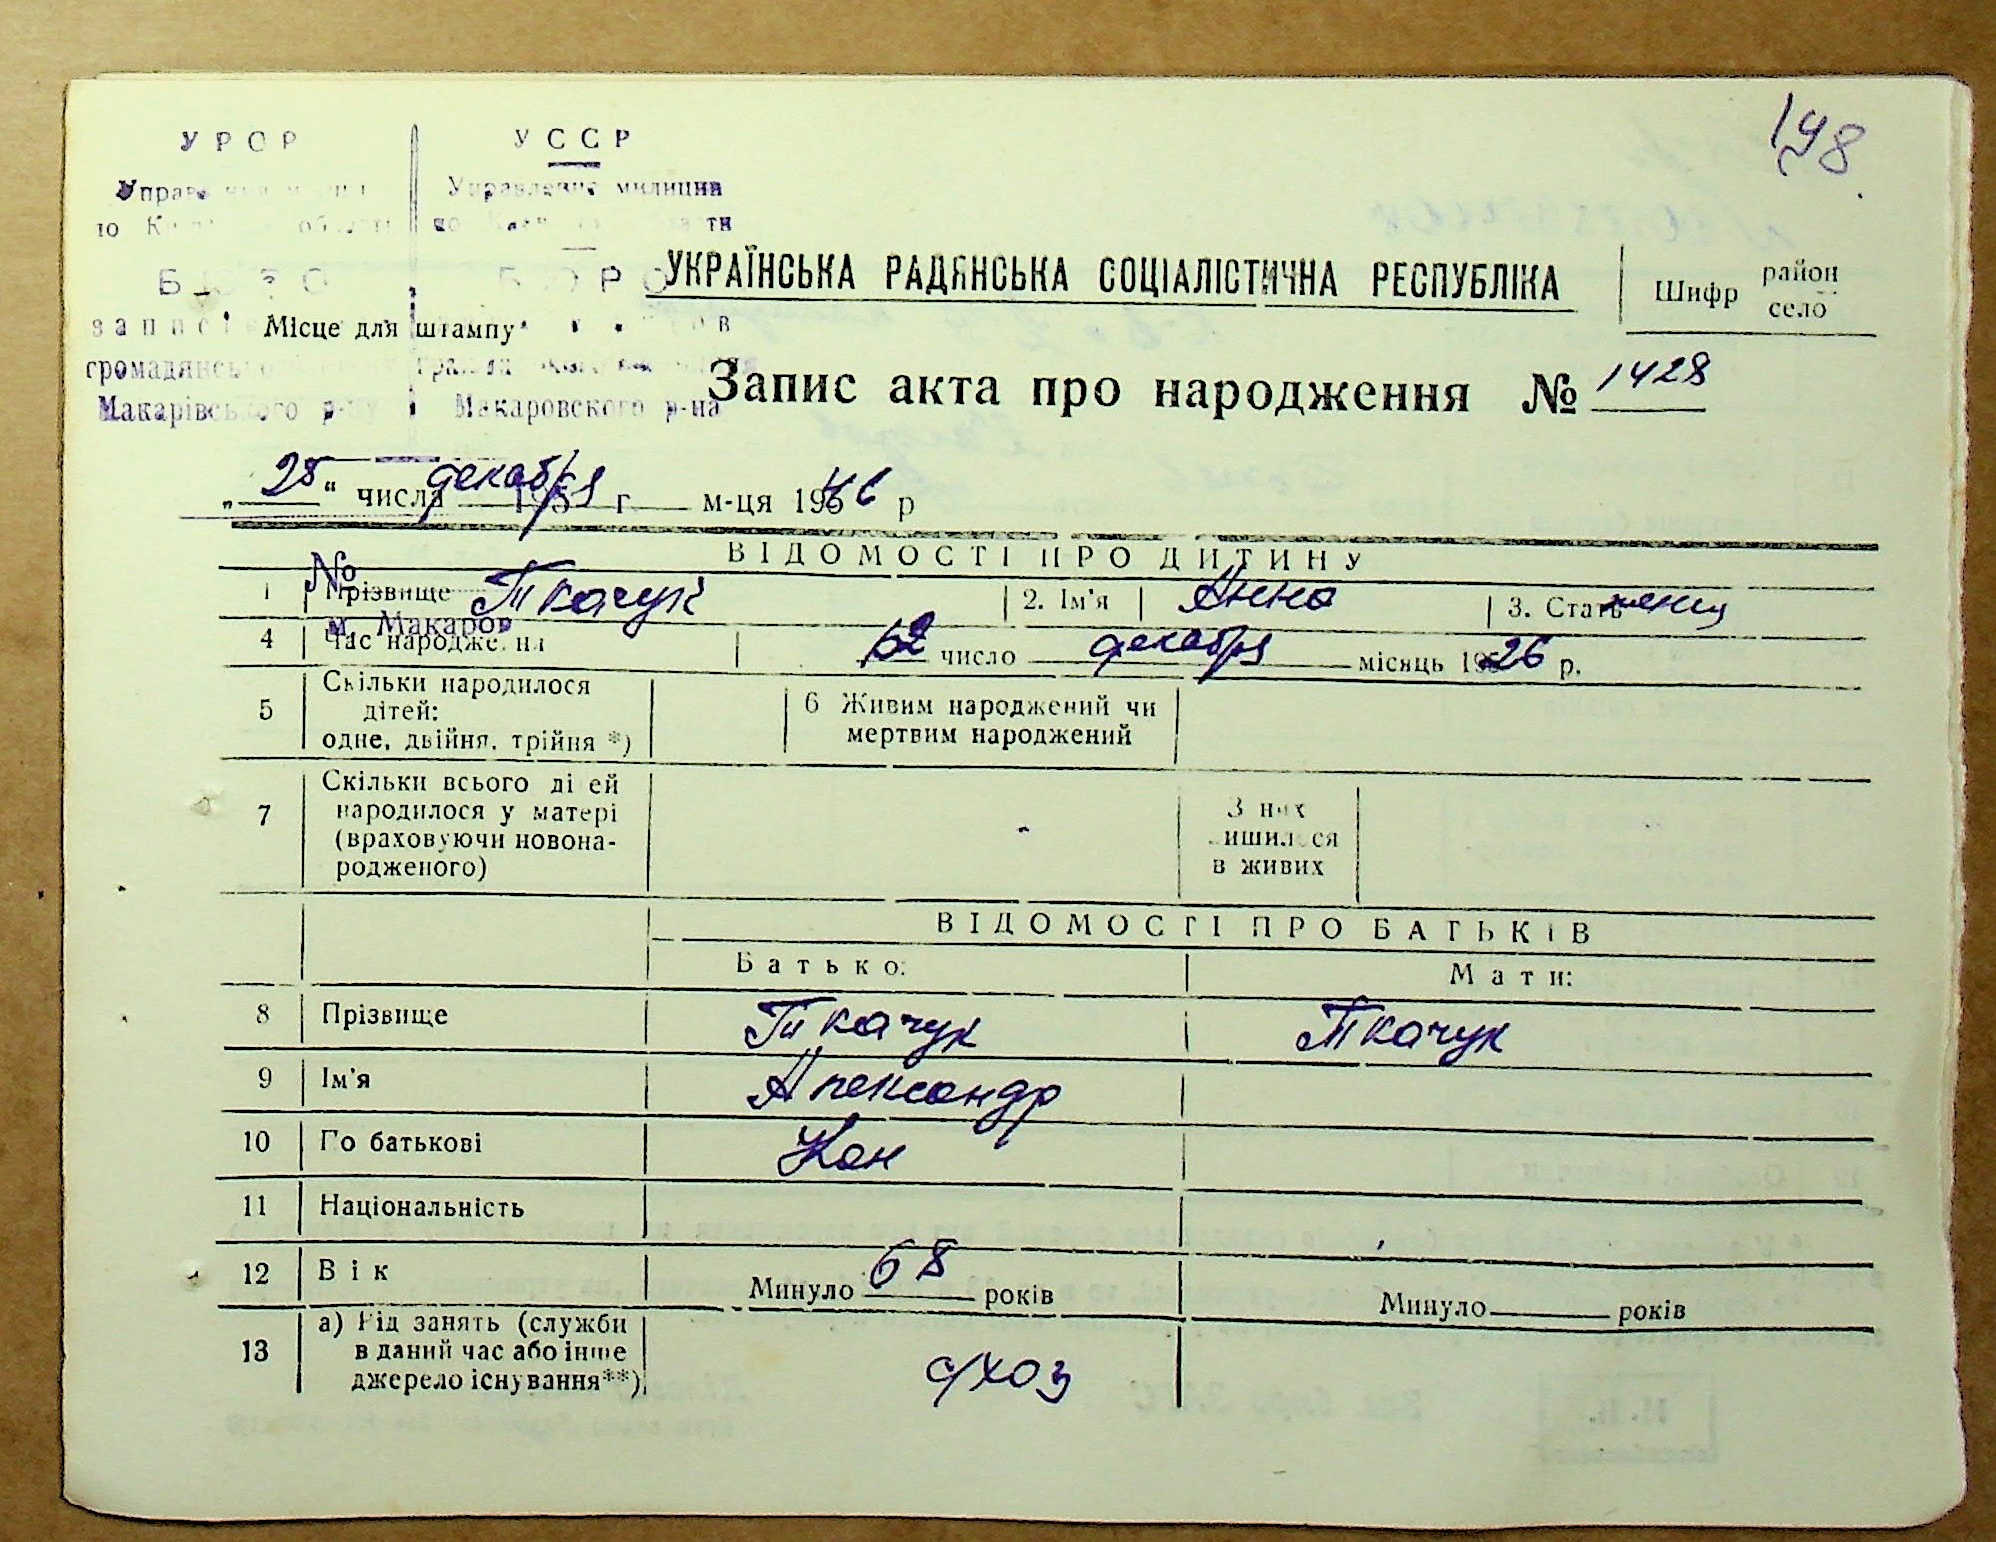 198
УРСР
УССР
Управление милиции
УКРАЇНСЬКА РАДЯНСЬКА СОЦІАЛІСТИЧНА РЕСПУБЛІКА
Шифр район село
Місце для штампу
Макарівського р-ну Макаровского р-на
Запис акта про народження № 1428
„25“ числа декабря м-ця 1946 р
ВІДОМОСТІ ПРО ДИТИНУ
№
1 Прізвище Ткачук 2. Ім'я Анна 3. Стать женщ
м. Макаров
4 Час народження число декабря місяць 1926 р.
5 Скільки народилося
дітей:
одне, двійня, трійня *)
6 Живим народжений чи
мертвим народжений
7 Скільки всього дітей
народилося у матері
(враховуючи новона-
родженого)
З них
лишилося
в живих
ВІДОМОСТІ ПРО БАТЬКІВ
Батько: Мати:
8 Прізвище Ткачук Ткачук
9 Ім'я Александр
10 По батькові Кон
11 Національність
12 Вік Минуло 68 років Минуло років
13 а) Рід занять (служби
в даний час або інше
джерело існування**)
с/хоз